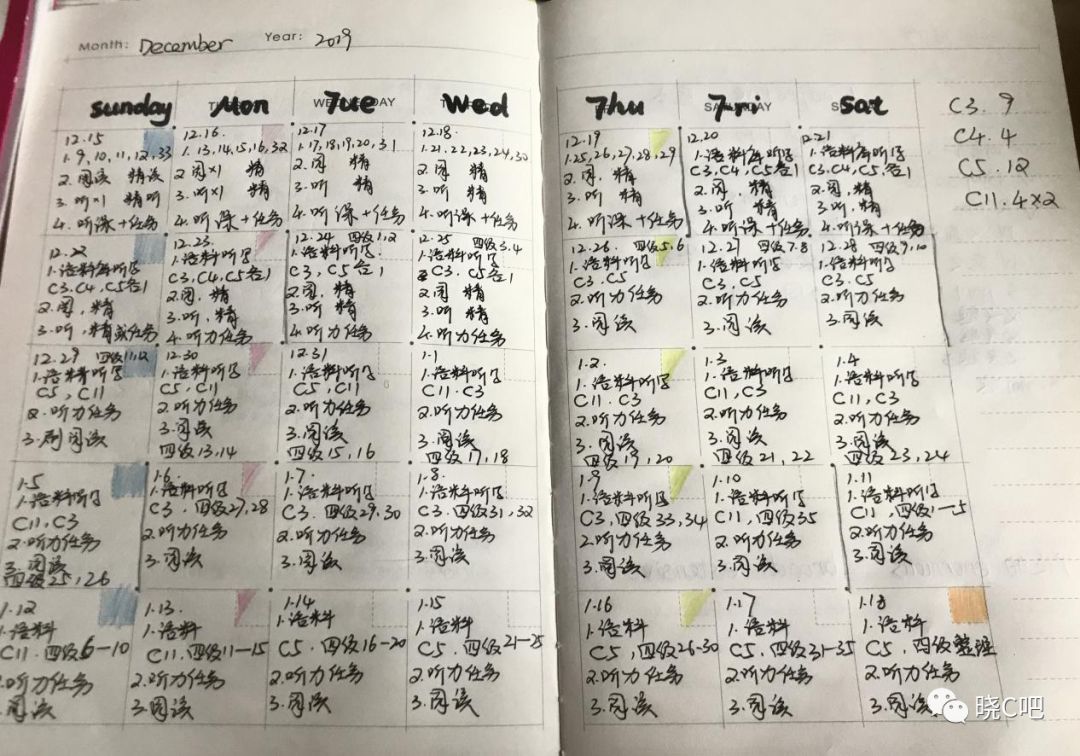 Month: December Year: 2019
sunday Mon Tue Wed Thu Fri Sat
12.15
1.9,10,11,12,33
2.阅读 精读
3.听x1 精听
4.听课+任务
12.16.
1.13,14,15,16,32
2.阅x1 精
3.听x1 精
4.听课+任务
12.17
1.17,18,19,20,31
2.阅 精
3.听 精
4.听课+任务
12.18.
1.21,22,23,24,30
2.阅 精
3.听 精
4.听课+任务
12.19
1.25,26,27,28,29
2.阅,精
3.听 精
4.听课+任务
12.20
1.语料库听写
C3,C4,C5各1
2.阅,精
3.听 精
4.听课+任务
12.21
1.语料库听写
C3.C4,C5各1
2.阅,精
3.听,精
4.听课+任务
C3.9
C4.4
C5.12
C11.4x2
12.22
1.语料库听写
C3.C4,C5各1
2.阅,精
3.听,精或任务
12.23.
1.语料听写
C3,C4,C5各1
2.阅,精
3.听,精
4.听力任务
12.24 四级1,2
1.语料听写.
C3,C5各1
2.阅,精
3.听 精
4.听力任务
12.25 四级3,4
1.语料听写
C3.C5各1
2.阅 精
3.听 精
4.听力任务
12.26. 四级5,6
1.语料听写
C3.C5
2.听力任务
3.阅读
12.27 四级7.8
1.语料听写
C3.C5
2.听力任务
3.阅读
12.28 四级9,10
1.语料听写
C3.C5
2.听力任务
3.阅读
12.29 四级11,12
1.语料听写
C5,C11
2.听力任务
3.刷阅读
12.30
1.语料听写
C5,C11
2.听力任务
3.阅读
四级13,14
12.31
1.语料听写
C5,C11
2.听力任务
3.阅读
四级15,16
1.1
1.语料听写
C11.C3
2.听力任务
3.阅读
四级17,18
1.2.
1.语料听写
C11.C3
2.听力任务
3.阅读
四级19,20
1.3
1.语料听写
C11,C3
2.听力任务
3.阅读
四级21,22
1.4
1.语料听写
C11,C3
2.听力任务
3.阅读
四级23,24
1.5
1.语料听写
C11,C3
2.听力任务
3.阅读
四级25,26
1.6
1.语料听写
C3.四级27,28
2.听力任务
3.阅读
1.7.
1.语料听写
C3.四级29,30
2.听力任务
3.阅读
1.8.
1.语料听写
C3.四级31,32
2.听力任务
3.阅读
1.9
1.语料听写
C3,四级33,34
2.听力任务
3.阅读
1.10
1.语料听写
C11,四级35
2.听力任务
3.阅读
1.11
1.语料听写
C11,四级1-5
2.听力任务
3.阅读
1.12
1.语料
C11.四级6-10
2.听力任务
3.阅读
1.13.
1.语料
C11.四级11-15
2.听力任务
3.阅读
1.14
1.语料
C5.四级16-20
2.听力任务
3.阅读
1.15
1.语料
C5.四级21-25
2.听力任务
3.阅读
1.16
1.语料
C5,四级26-30
2.听力任务
3.阅读
1.17
1.语料
C5.四级31-35
2.听力任务
3.阅读
1.18
1.语料
C5.四级整理
2.听力任务
3.阅读
晓C吧